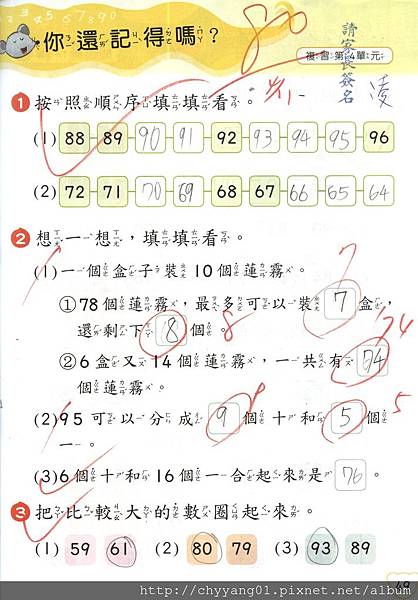 你還記得嗎？
複習第4單元
請家長簽名
凌
80
1 按照順序填填看。
(1) 88 89 90 91 92 93 94 95 96
(2) 72 71 70 69 68 67 66 65 64
2 想一想，填填看。
(1) 一個盒子裝10個蓮霧。
7
① 78個蓮霧，最多可以裝 7 盒，
還剩下 8 個。 8
74
② 6盒又14個蓮霧，一共有 74
個蓮霧。
9
(2) 95可以分成 9 個十和 5 個 5
一。
(3) 6個十和16個一合起來是 76 。
3 把比較大的數圈起來。
(1) 59 61 (2) 80 79 (3) 93 89
49
http://chyyang01.pixnet.net/album